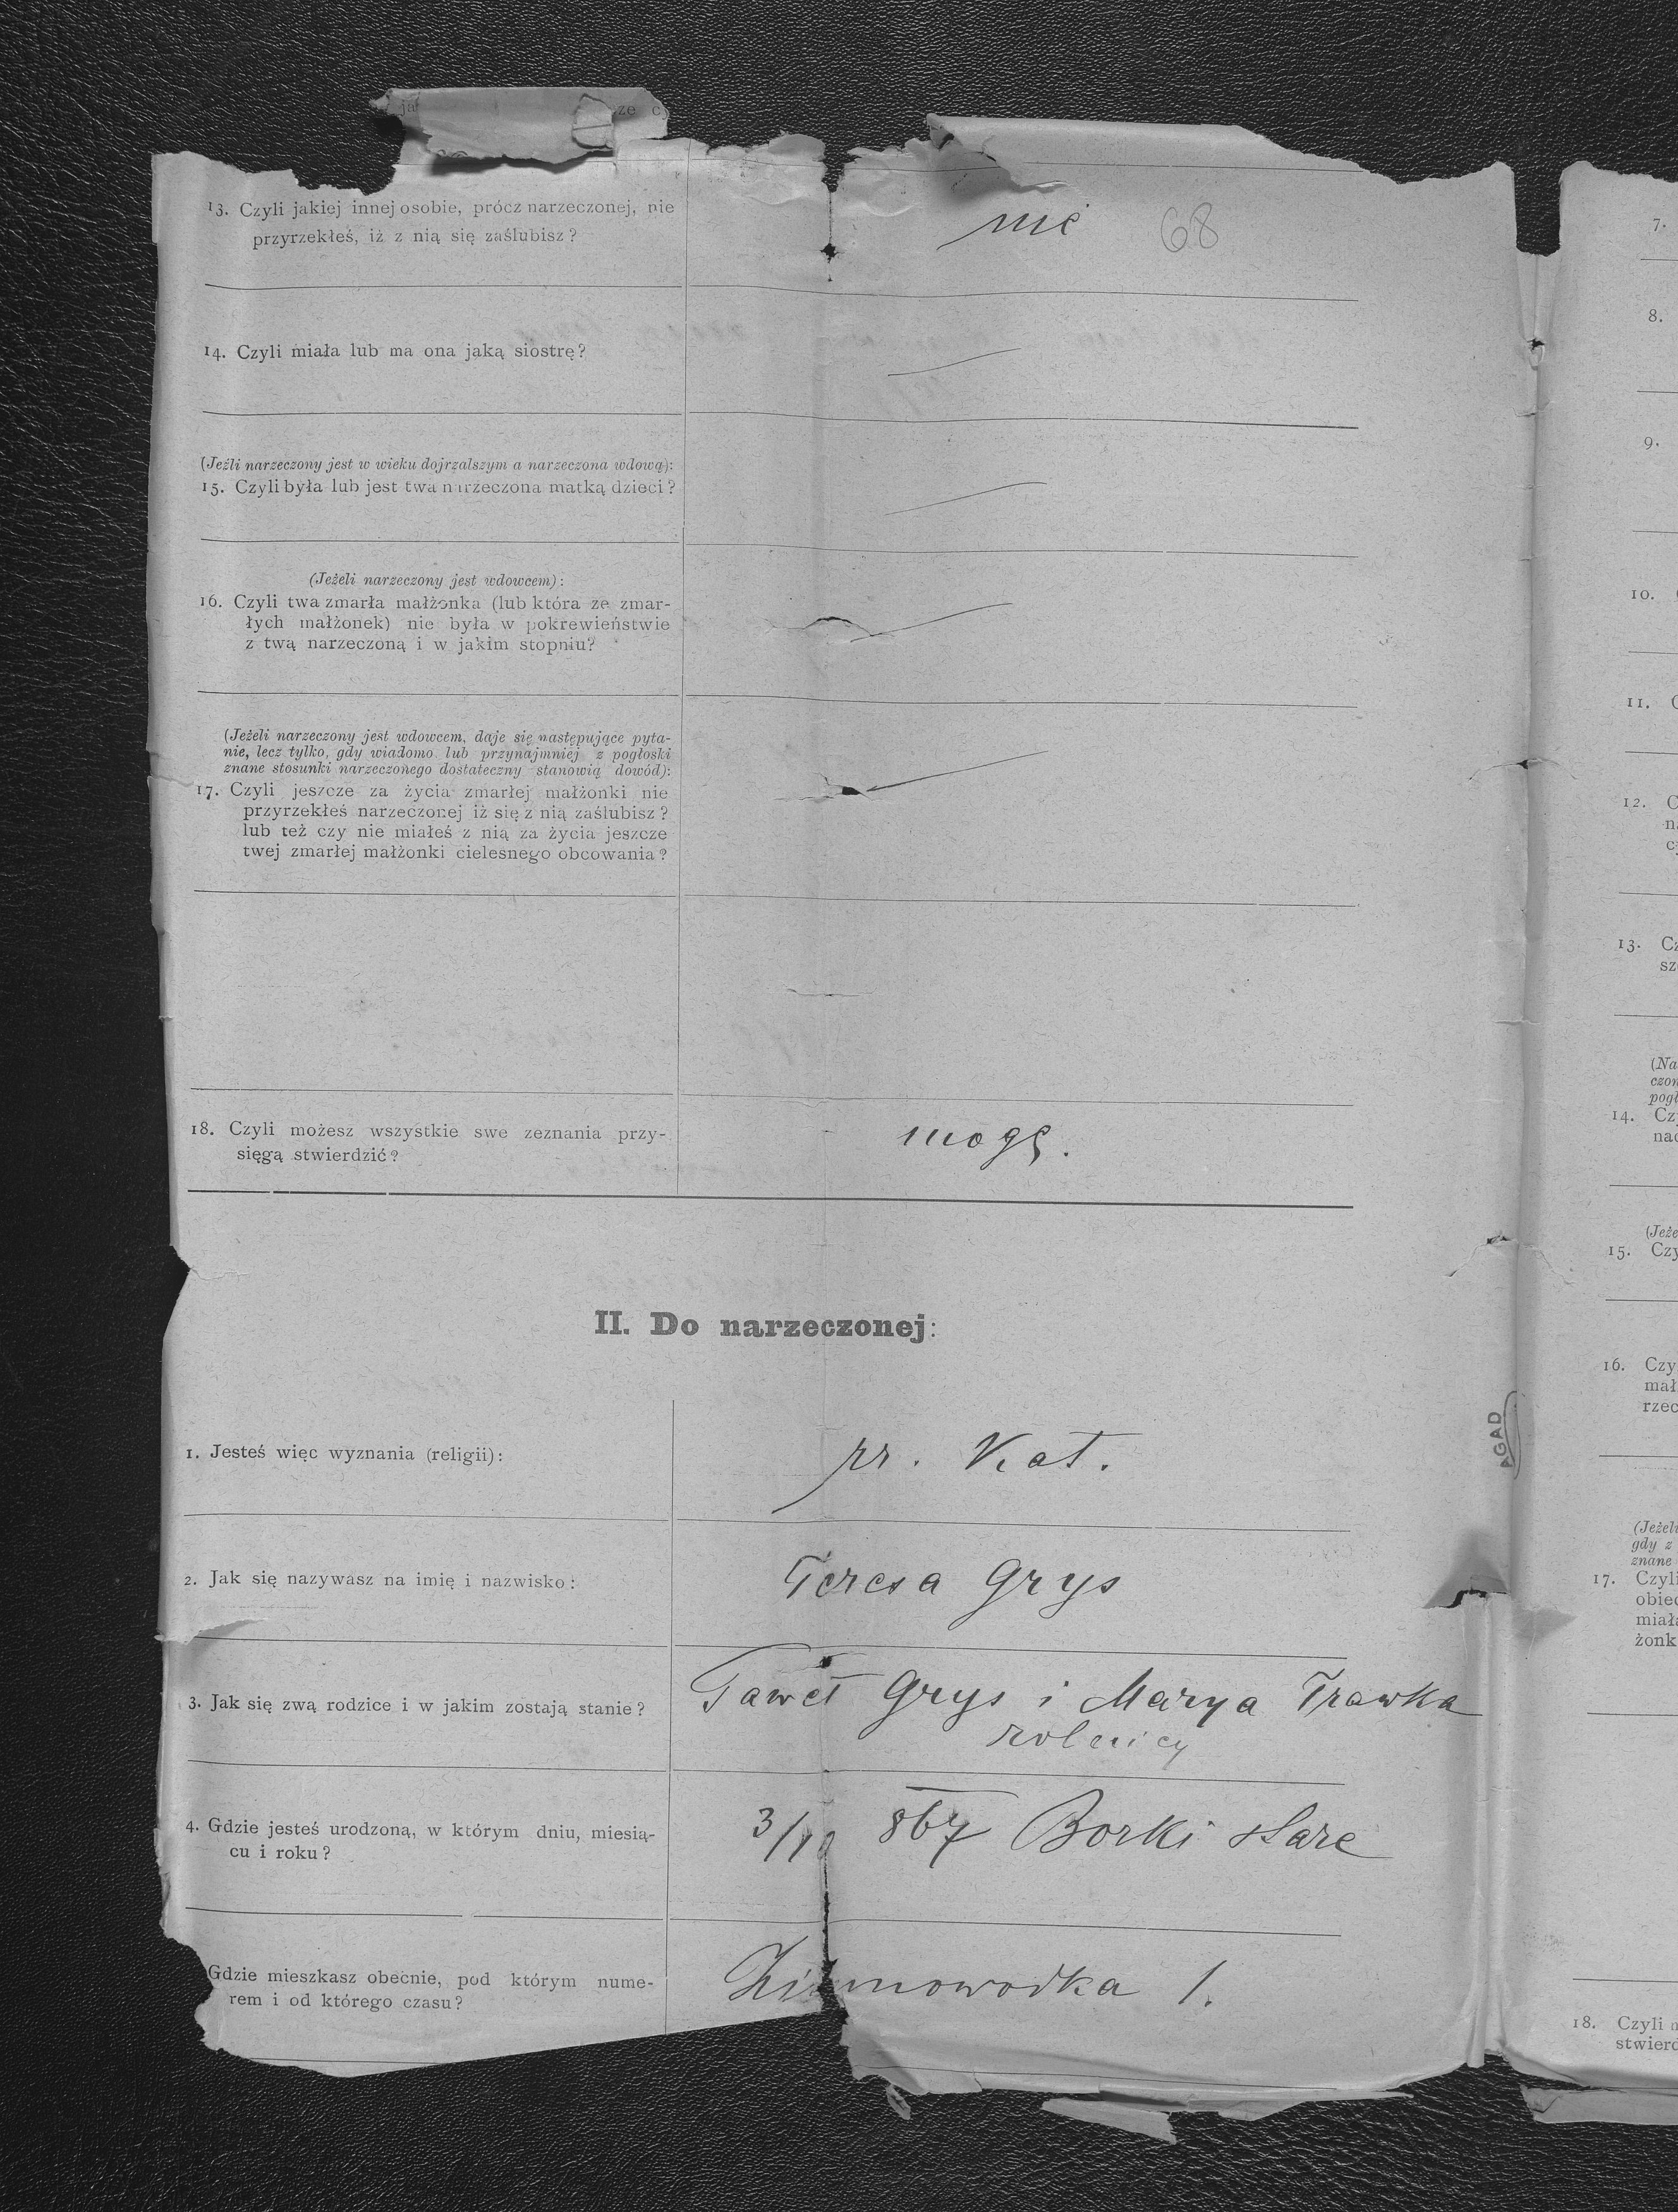 ja
ze c
13. Czyli jakiej innej osobie, prócz narzeczonej, nie
przyrzekłeś, iż z nią się zaślubisz?
nie 68
14. Czyli miała lub ma ona jaką siostrę?
(Jeźli narzeczony jest w wieku dojrzalszym a narzeczona wdową):
15. Czyli była lub jest twa narzeczona matką dzieci?
(Jeżeli narzeczony jest wdowcem):
16. Czyli twa zmarła małżonka (lub która ze zmar-
łych małżonek) nie była w pokrewieństwie
z twą narzeczoną i w jakim stopniu?
(Jeżeli narzeczony jest wdowcem, daje się następujące pyta-
nie, lecz tylko, gdy wiadomo lub przynajmniej z pogłoski
znane stosunki narzeczonego dostateczny stanowią dowód):
17. Czyli jeszcze za życia zmarłej małżonki nie
przyrzekłeś narzeczonej iż się z nią zaślubisz?
lub też czy nie miałeś z nią za życia jeszcze
twej zmarłej małżonki cielesnego obcowania?
18. Czyli możesz wszystkie swe zeznania przy-
sięgą stwierdzić?
mogę.
II. Do narzeczonej:
1. Jesteś więc wyznania (religii):
rz. Kat.
2. Jak się nazywasz na imię i nazwisko:
Teresa Grys
3. Jak się zwą rodzice i w jakim zostają stanie?
Paweł Grys i Marya Trawka
rolnicy
4. Gdzie jesteś urodzoną, w którym dniu, miesią-
cu i roku?
3/10 867 Borki stare
Gdzie mieszkasz obecnie, pod którym nume-
rem i od którego czasu?
Zimnowodka 1.
AGAD
7.
8.
9.
10.
11. C
12. C
na
cy
13. Cz
sz
(Na
czon
pogł
14. Cz
nac
(Jeże
15. Czy
16. Czy
mał
rzec
(Jeżeli
gdy z
znane
17. Czyli
obiec
miała
żonk
18. Czyli m
stwierd